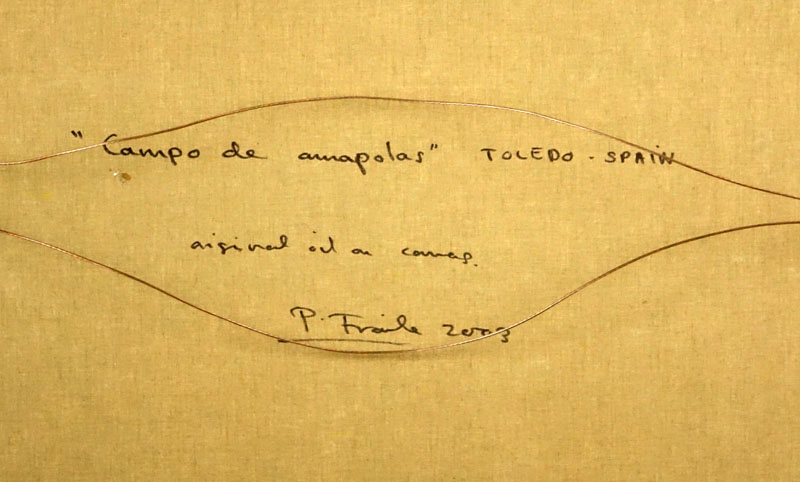 "Campo de amapolas" TOLEDO - SPAIN
original oil on canvas.
P. Fraile 2003